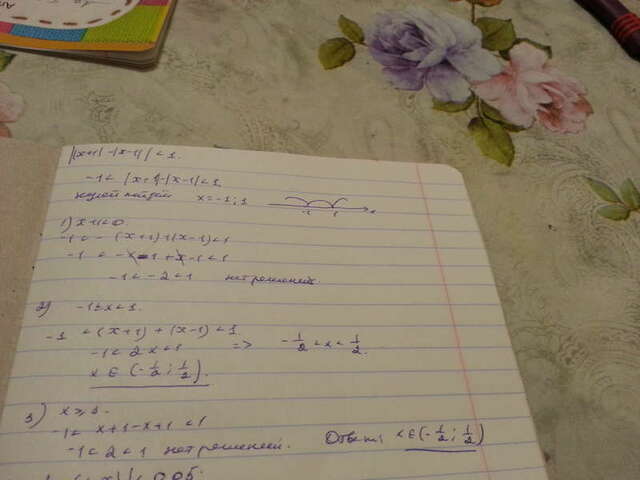 ||x+1|-|x-1|| < 1.
-1 < |x+1|-|x-1| < 1
x = -1; 1
-1 1 x
1) x+1<0
-1 < -(x+1)+(x-1)<1
-1 < -x-1+x-1<1
-1 < -2 < 1 нет решений.
2) -1≤x<1.
-1 < (x+1)+(x-1)<1
-1 < 2x < 1 => -1/2 < x < 1/2.
x ∈ (-1/2; 1/2).
3) x ≥ 1.
-1 < x+1-x+1 < 1
-1 < 2 < 1 нет решений. Ответ: x∈(-1/2; 1/2)